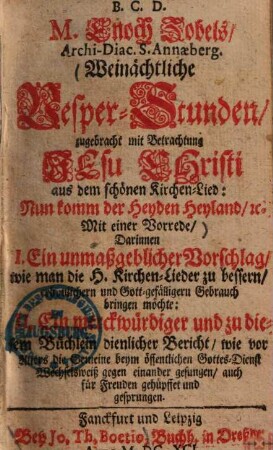 B. C. D.
M. Enoch Zobels/
Archi-Diac. S. Annæberg.
Weinächtliche
Vesper-Stunden/
zugebracht mit Betrachtung
JEsu CHristi
aus dem schönen Kirchen-Lied:
Nun komm der Heyden Heyland/ ꝛc.
Mit einer Vorrede/
Darinnen
I. Ein unmaßgeblicher Vorschlag/
wie man die H. Kirchen-Lieder zu bessern/
und Gott-gefälligern Gebrauch
bringen möchte:
Ein merckwürdiger und zu die-
sem Büchlein dienlicher Bericht/ wie vor
Alters die Gemeine beym öffentlichen Gottes-Dienst
Wechselsweiß gegen einander gesungen/ auch
für Freuden gehüpffet und
gesprungen.
Franckfurt und Leipzig
Bey Jo. Th. Boetio/ Buchh. in Dreßden